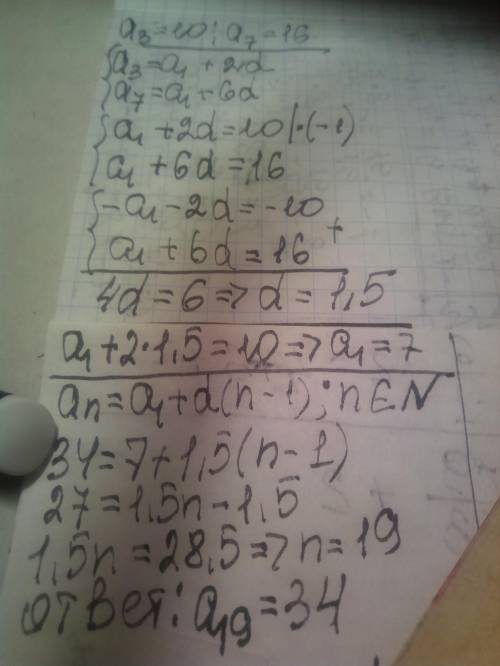 a₃=10; a₇=16
{a₃=a₁+2d
{a₇=a₁+6d
{a₁+2d=10|·(-1)
{a₁+6d=16
{-a₁-2d=-10
{a₁+6d=16 +
4d=6=>d=1,5
a₁+2·1,5=10=>a₁=7
aₙ=a₁+d(n-1);n∈N
34=7+1,5(n-1)
27=1,5n-1,5
1,5n=28,5=>n=19
ответ: a₁₉=34